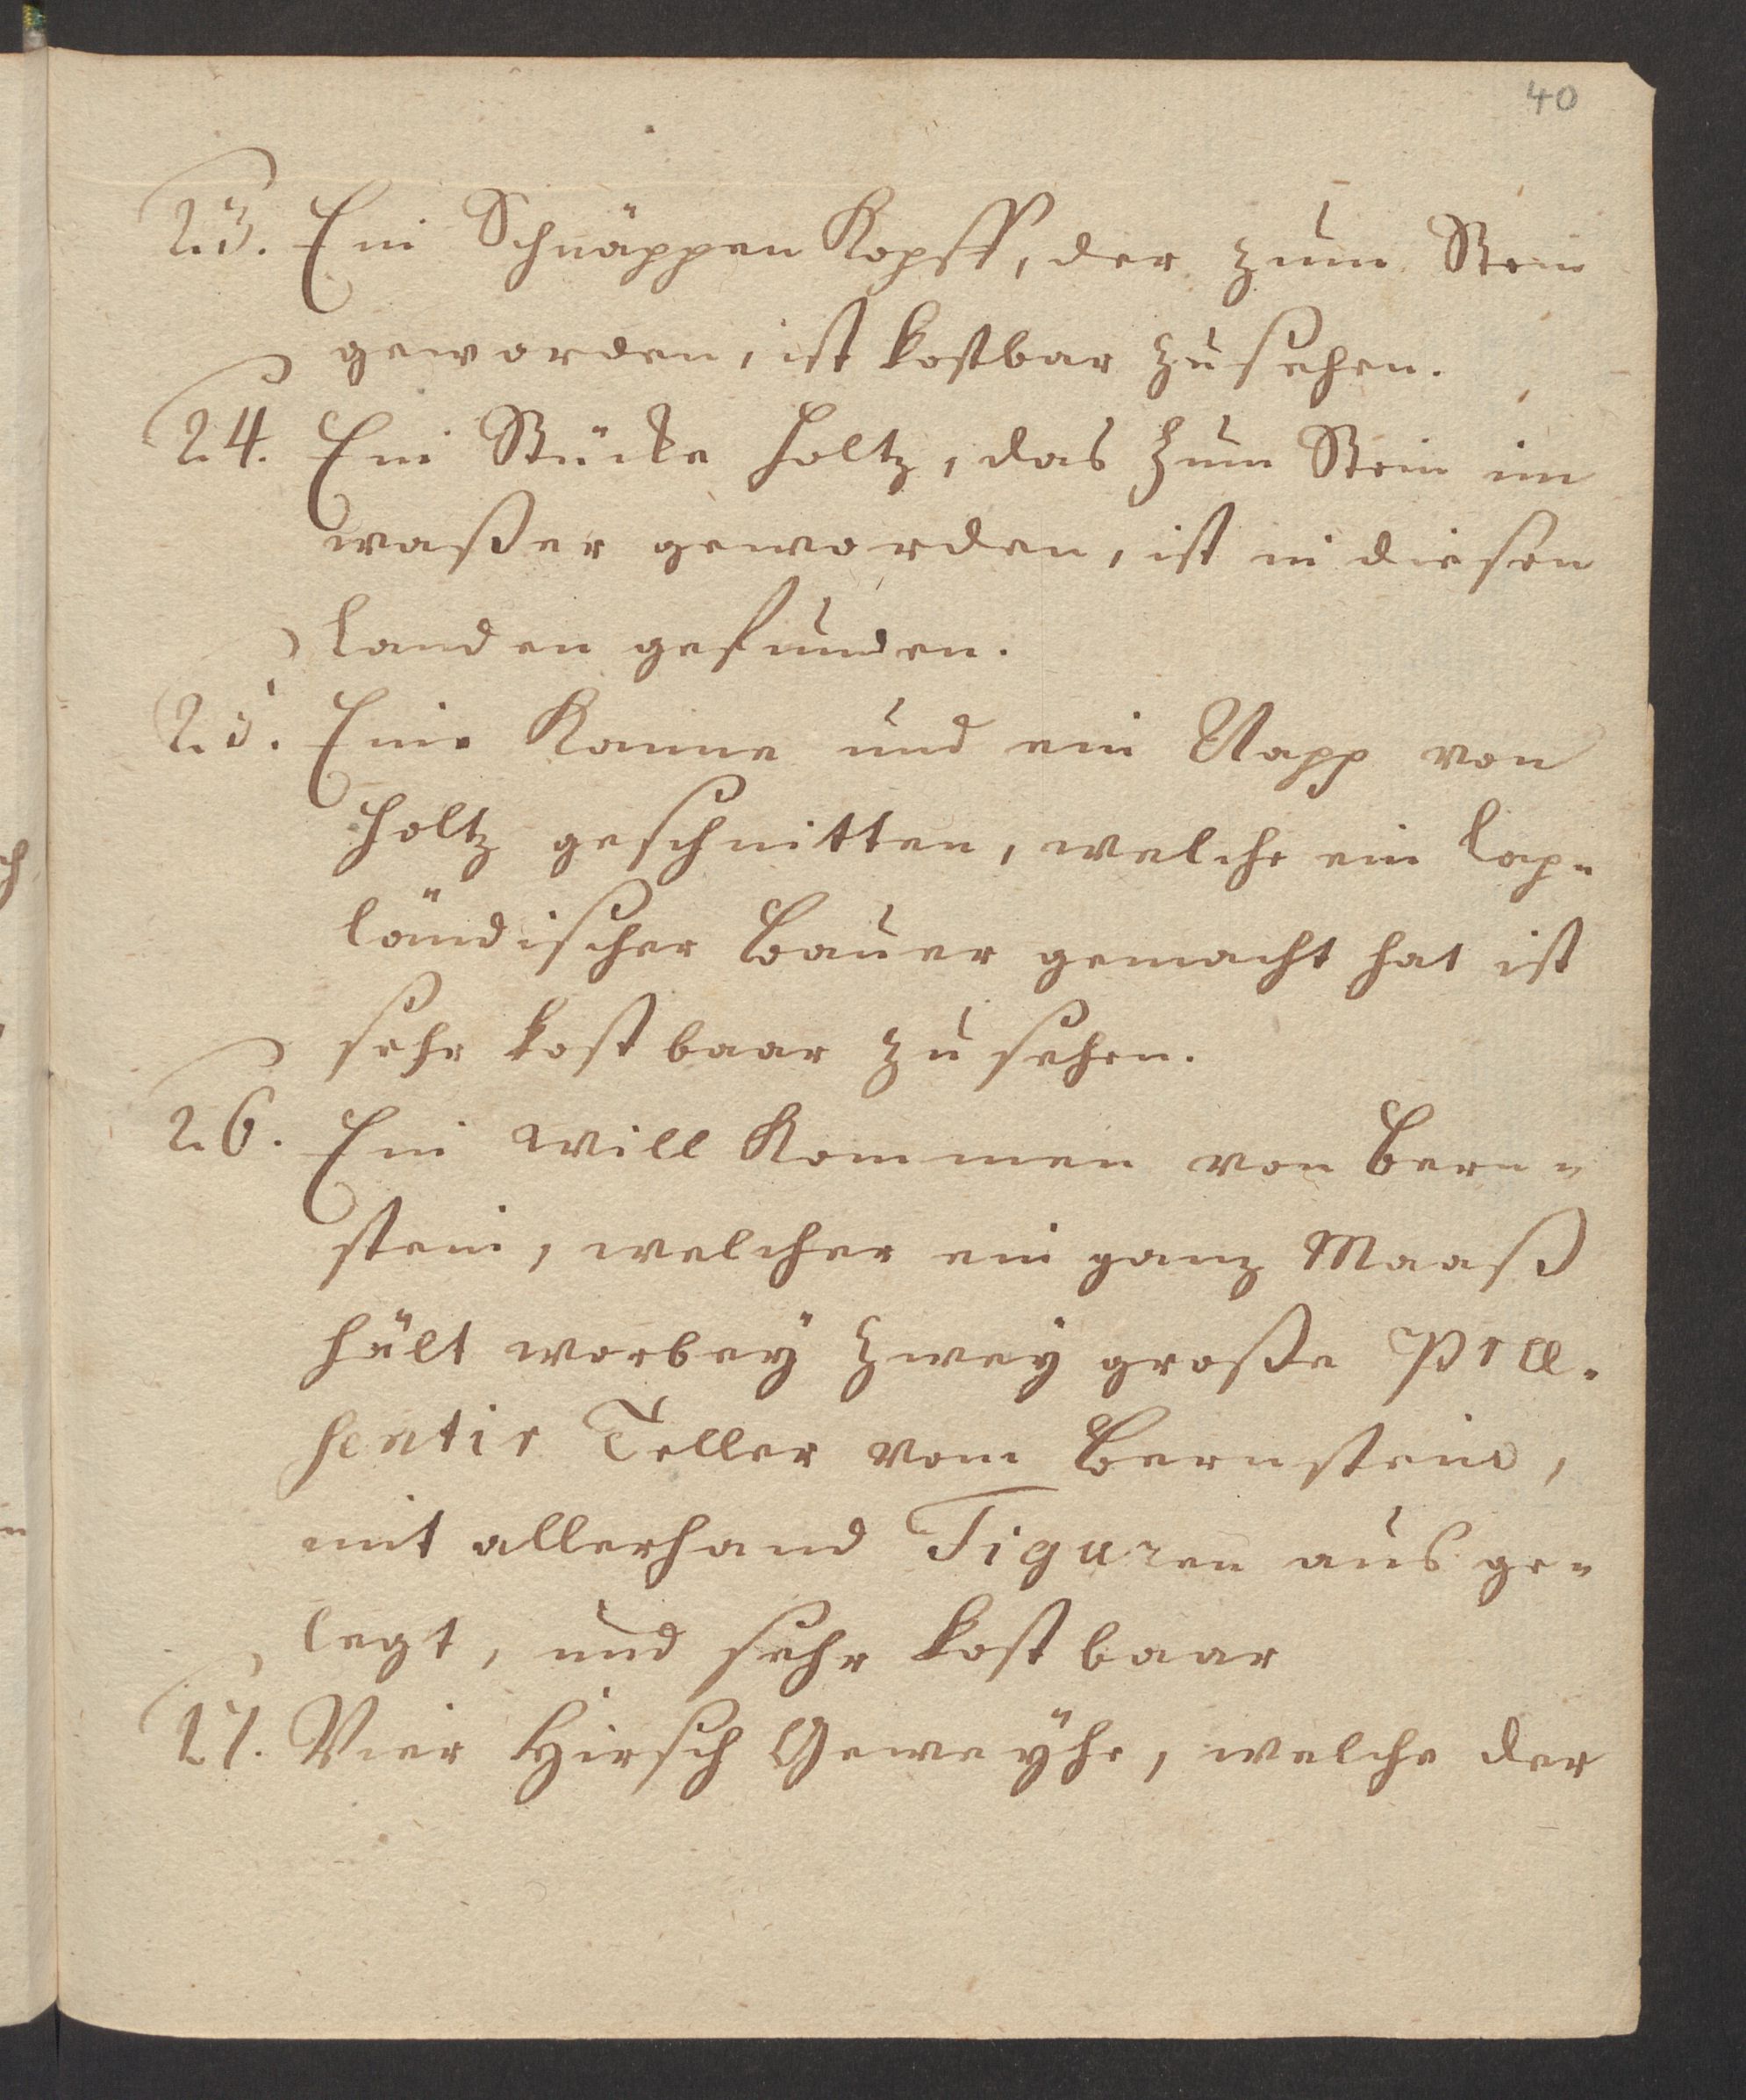 40
23. Ein Schnäppen Kopff, der zum Stein
geworden, ist kostbar zu sehen.
24. Ein Stücke Holtz, das zum Stein im
waßer geworden, ist in diesen
Landen gefunden.
25. Eine Kanne und ein Napp von
Holtz geschnitten, welche ein Lap-
ländischer Bauer gemacht hat ist
sehr kostbaar zu sehen.
26. Ein Will Kommen von Bern-
stein, welcher ein ganz Maaß
hält worbey zwey große Præ-
sentir Teller vom Bernstein,
mit allerhand Figuren aus ge-
legt, und sehr kostbaar
27. Vier Hirsch Geweyhe, welche der